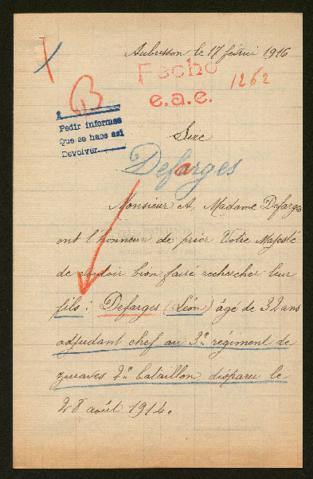 Aubusson le 17 février 1916
Fecho
1262
e.a.e.
B
Pedir informes
Que se hace así
Devolver
Sire
Defarges
Monsieur et Madame Defarges
ont l'honneur de prier Votre Majesté
de vouloir bien faire rechercher leur
fils : Defarges (Léon) âgé de 32 ans
adjudant chef au 3e régiment de
zouaves 7e bataillon disparu le
28 août 1914.